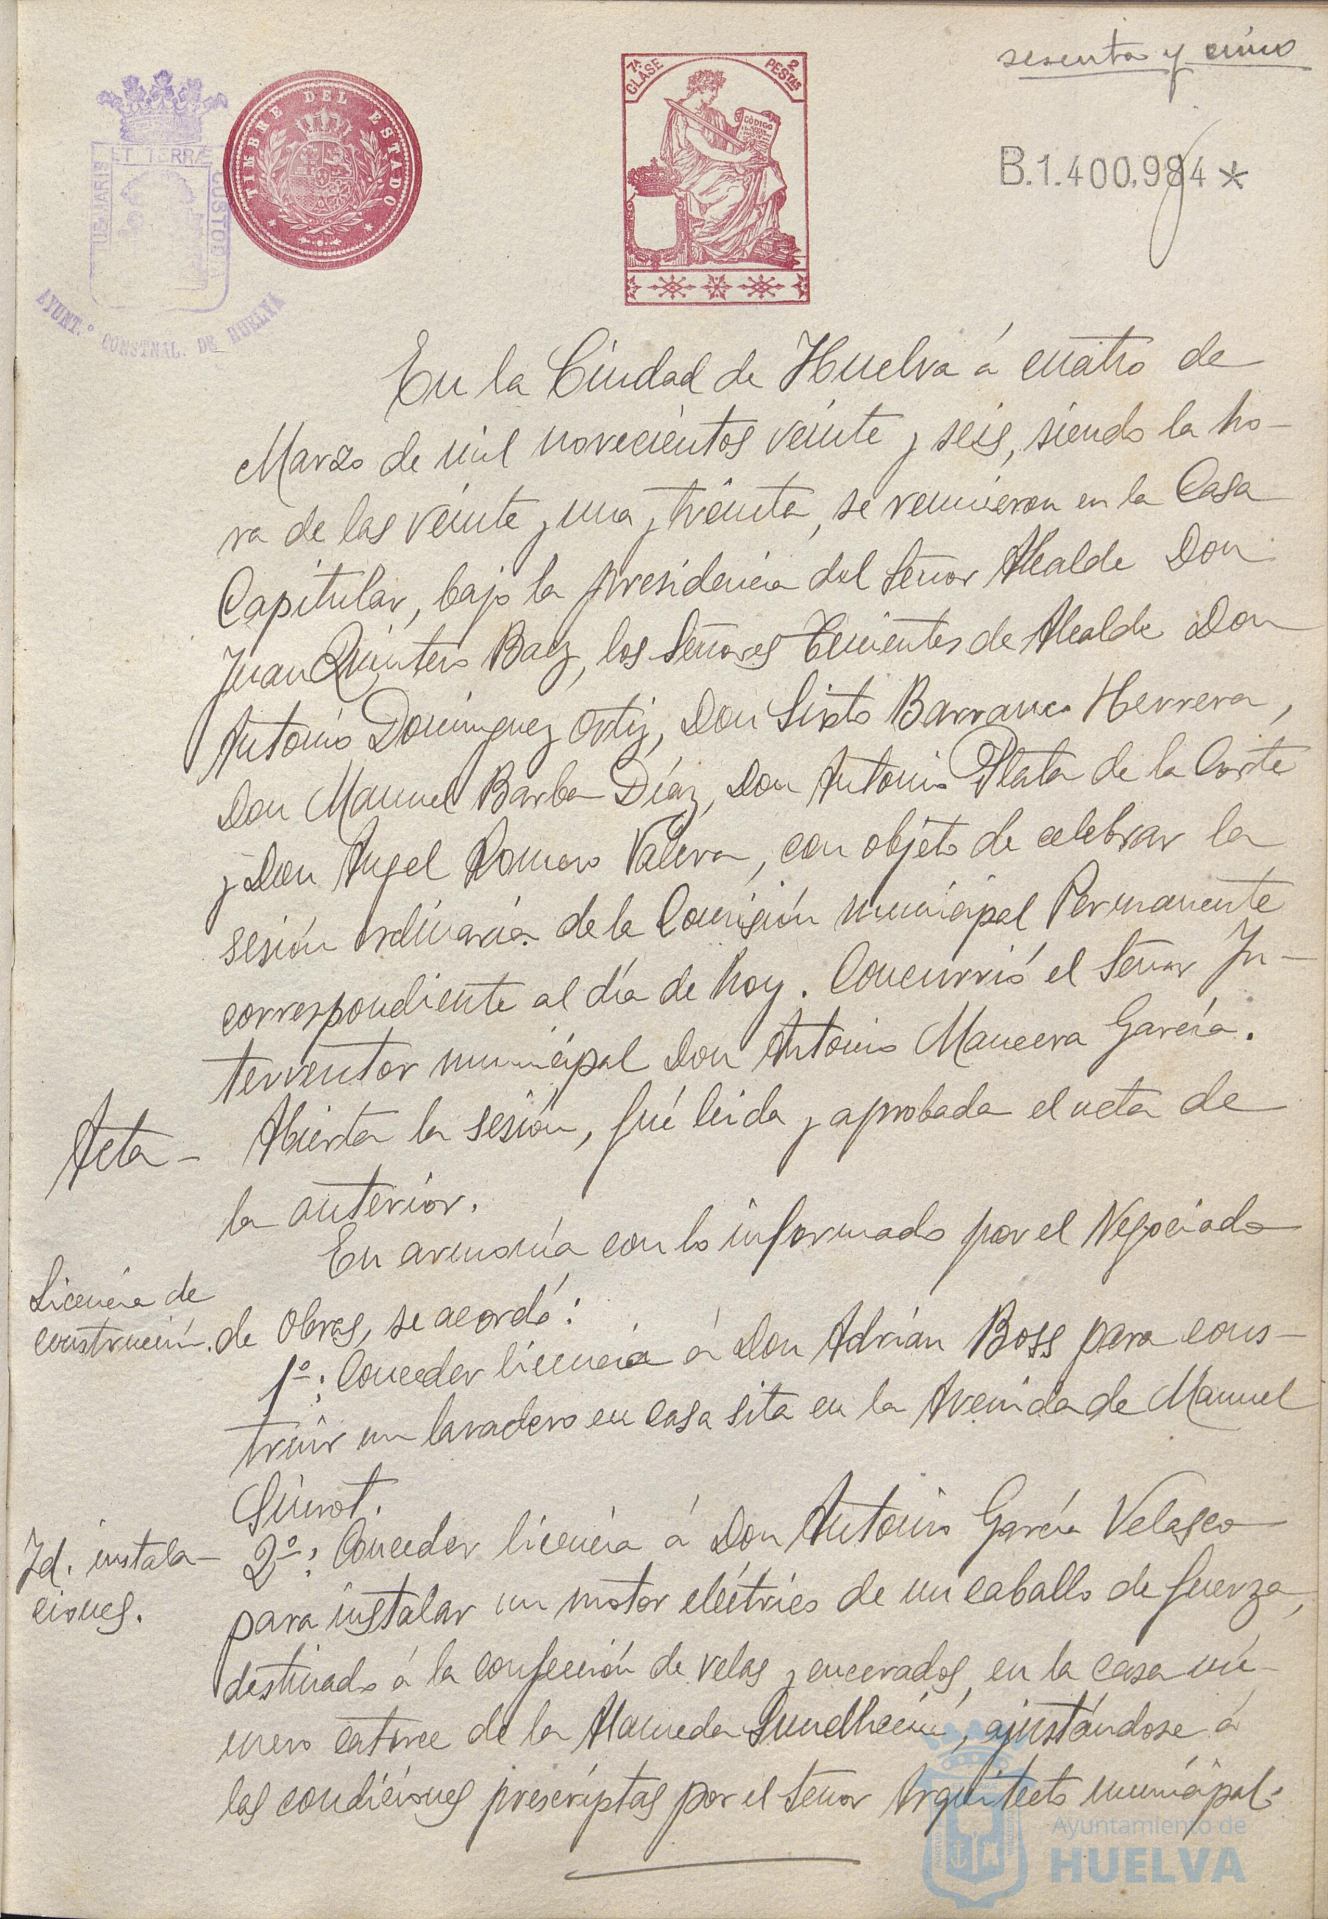 sesenta y cinco
7ª CLASE
2 PESTAS
CÓDIGO
TIMBRE DEL ESTADO
ET TERRÆ CUSTODIA
AYUNT.º CONSTNAL. DE HUELVA
B.1.400.984*
En la Ciudad de Huelva á cuatro de
Marzo de mil novecientos veinte y seis, siendo la ho-
ra de las veinte y una y treinta, se reunieron en la Casa
Capitular, bajo la presidencia del Señor Alcalde Don
Juan Quintero Baez, los Señores Tenientes de Alcalde Don
Antonio Dominguez Ortiz, Don Sixto Barranco Herrera,
Don Manuel Barba Díaz, Don Antonio Plata de la Corte
y Don Angel Romero Valera, con objeto de celebrar la
sesión ordinaria de la Comisión municipal Permanente
correspondiente al día de hoy. Concurrió el Señor In-
terventor municipal Don Antonio Mancera García.
Acta- Abierta la sesión, fué leida y aprobada el acta de
la anterior.
En armonía con lo informado por el Negociado
Licencia de
construcción. de Obras, se acordó:
1º: Conceder licencia á Don Adrián Boss para cons-
truir un lavadero en casa sita en la Avenida de Manuel
Siurot.
Id. instala- 2º: Conceder licencia á Don Antonio García Velasco
ciones. para instalar un motor eléctrico de un caballo de fuerza,
destinado á la confección de velas y encerados, en la casa nú-
mero catorce de la Alameda Sundheim, ajustándose á
las condiciones prescriptas por el Señor Arquitecto municipal.
Ayuntamiento de
HUELVA